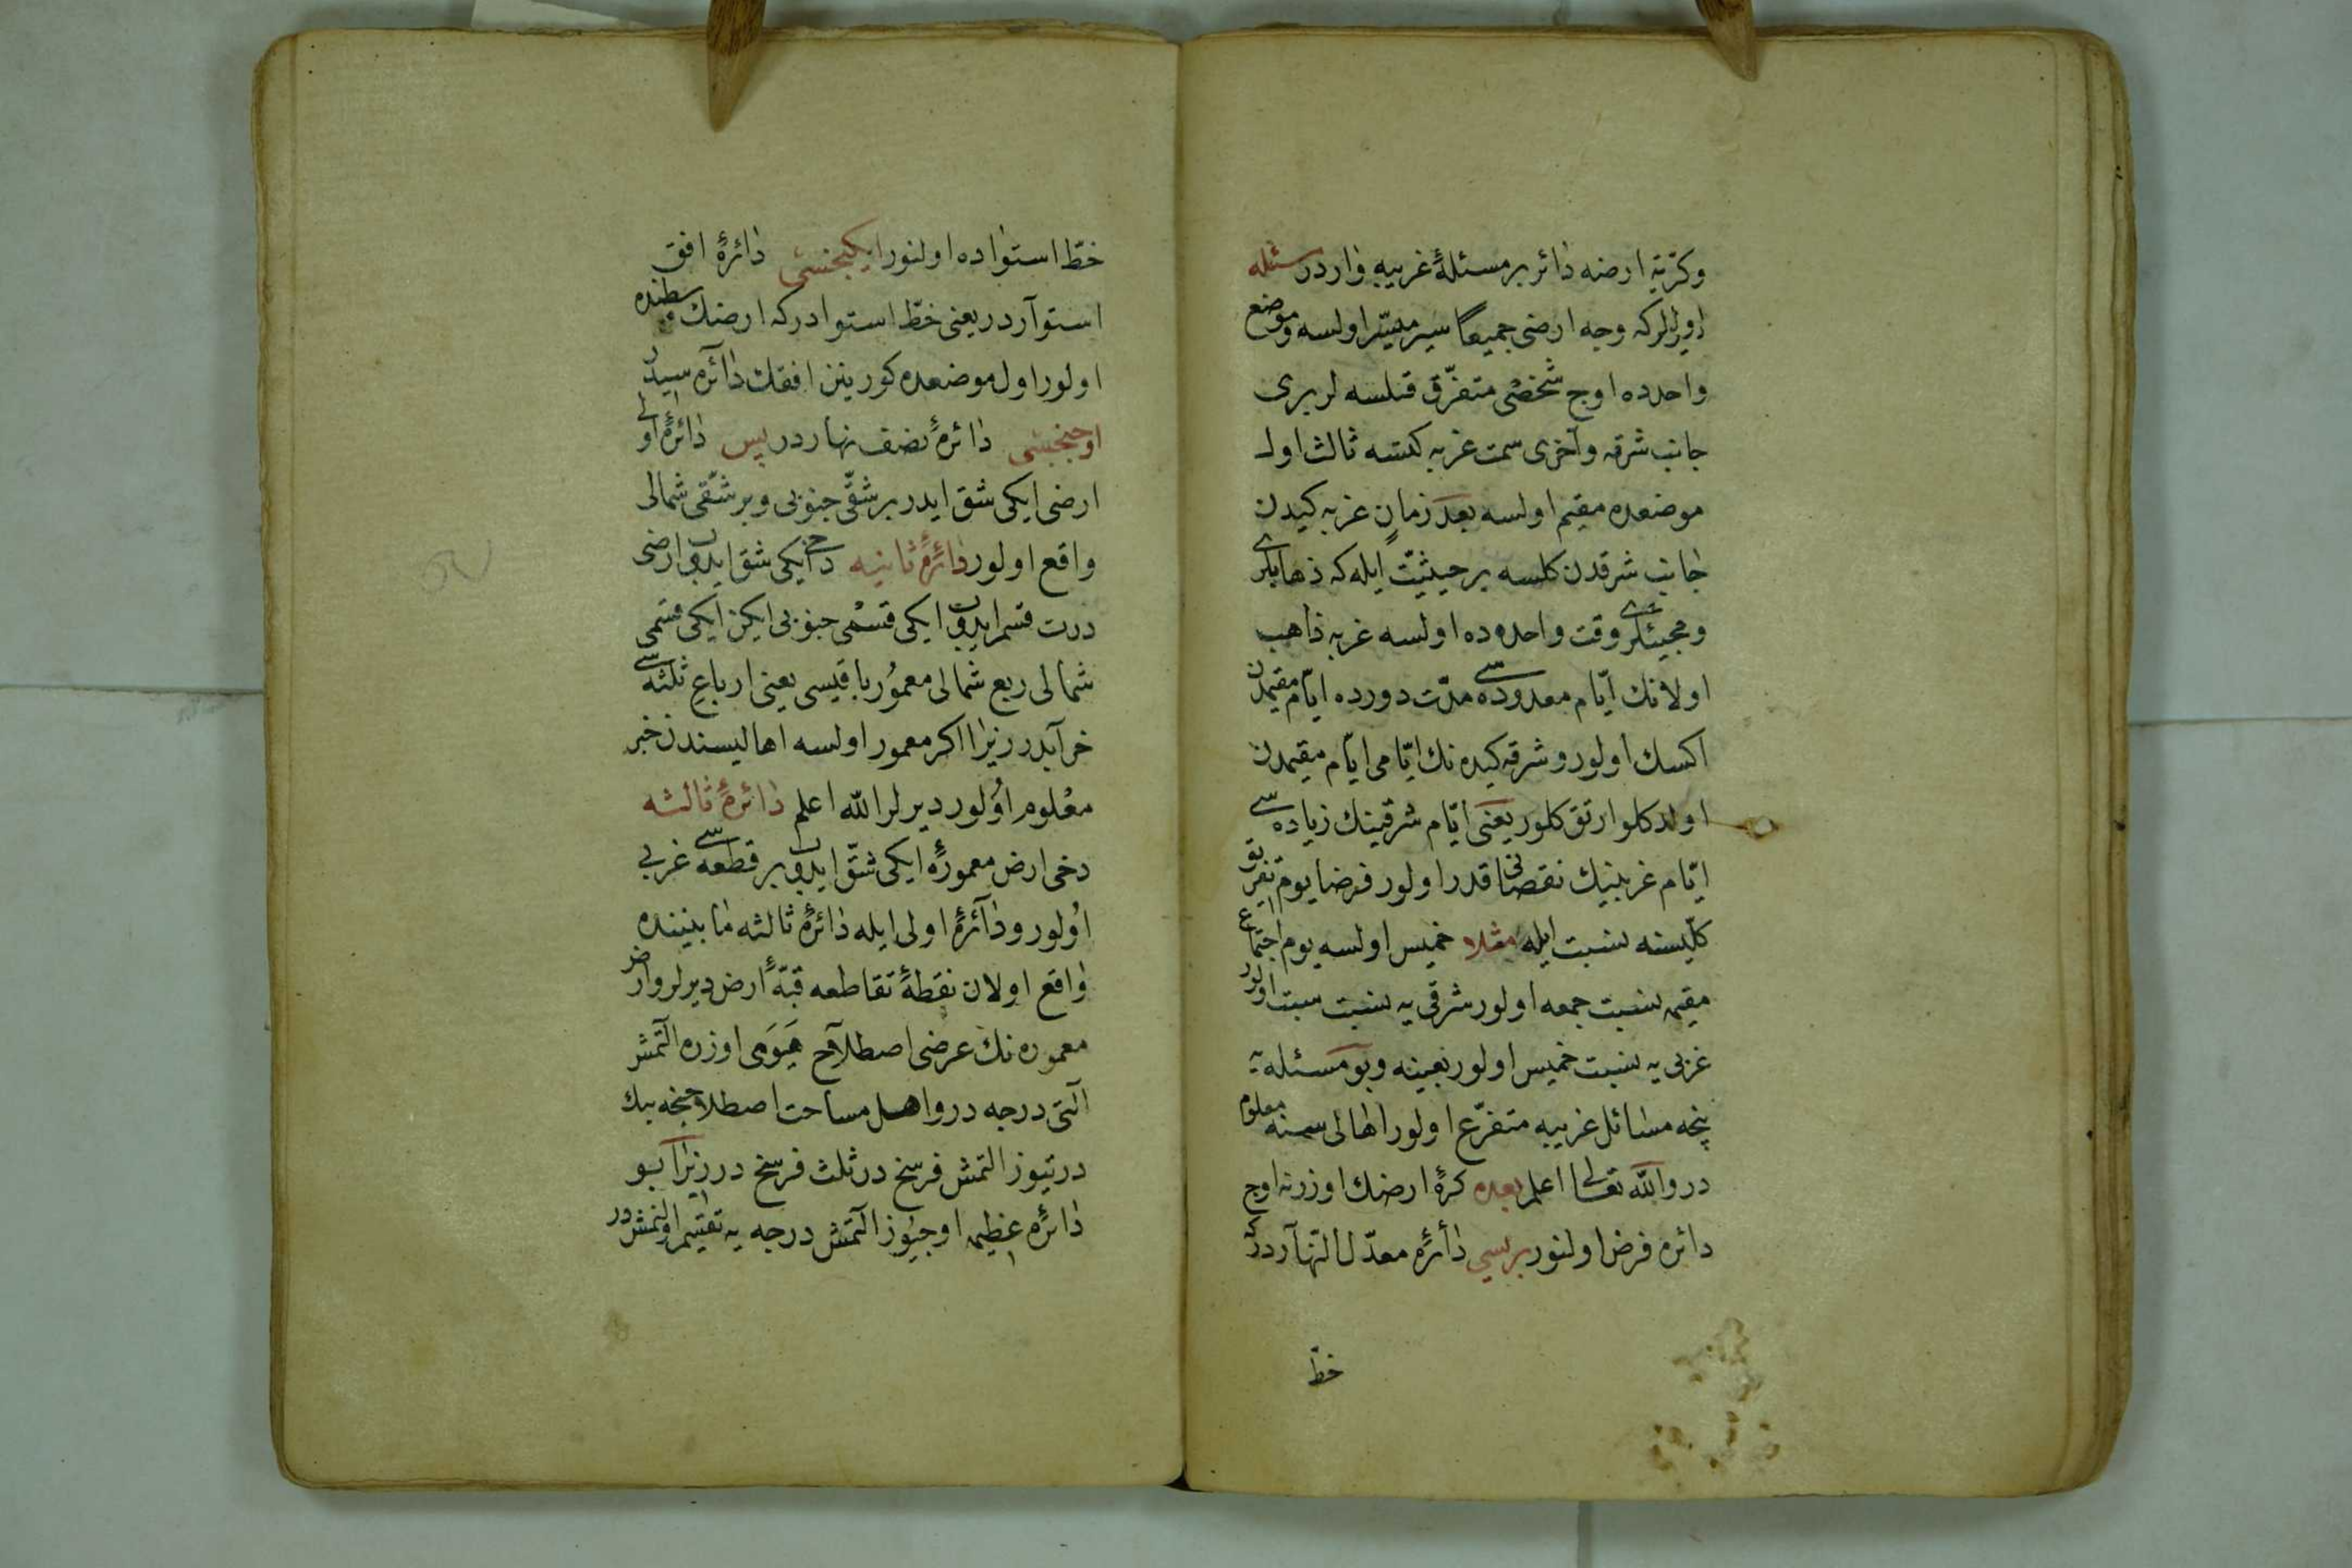 وكرّيّة ارضه دائر بر مسئلهٔ غريبه واردر مسئله
ديرلر كه وجه ارضى جميعًا سير ميسّر اولسه و موضع
واحدده اوچ شخص متفرّق قلسه لر برى
جانب شرقه و آخرى سمت غربه كتسه ثالث اول
موضعده مقيم اولسه بعد زمانٍ غربه كيدن
جانب شرقدن كلسه بر حيثيّت ايله كه ذهابلرى
و مجيئلرى وقت واحدده اولسه غربه ذاهب
اولانك ايّام معدوده سى مدّت دورده ايّام مقيمدن
اكسك اولور و شرقه كيدنك ايّامى ايّام مقيمدن
اولدكلو ارتق كلور يعنى ايّام شرقينك زياده سى
ايّام غربينيك نقصانى قدر اولور فرضا يوم تفريق
كلّيسنه نسبت ايله مثلا خميس اولسه يوم اجتماع
مقيمه نسبت جمعه اولور شرقى يه نسبت سبت اولور
غربى يه نسبت خميس اولور بعينه و بو مسئله يه
نيجه مسائل غريبه متفرّع اولور اهالى سمنه معلوم
در والله تعالى اعلم بعده كرهٔ ارضك اوزرنه اوچ
دائره فرض اولنور بريسى دائرهٔ معدّل النهاردر كه
خطّ
خطّ استواده اولنور ايكيجنسى دائرهٔ افق
استوآردر يعنى خطّ استوادر كه ارضك وسطنده
اولور اول موضعده كورينن افقك دائره سيدر
اوجنجيسى دائرهٔ نصف نهاردر پس دائرهٔ اولى
ارضى ايكى شق ايدر بر شقّى جنوبى و بر شقّى شمالى
واقع اولور دائرهٔ ثانيه دخى ايكى شق ايدوب ارضى
درت قسم ايدوب ايكى قسمى جنوبى ايكن ايكى قسمى
شمالى ربع شمالى معمور باقيسى يعنى ارباع ثلثه سى
خرآبدر زيرا اكر معمور اولسه اهاليسندن خبر
معلوم اولور ديرلر الله اعلم دائرهٔ ثالثه
دخى ارض معمورهٔ ايكى شقّ ايدوب بر قطعه سى غربى
اولور و دآئرهٔ اولى ايله دائرهٔ ثالثه مابيننده
واقع اولان نقطهٔ تقاطعه قبّهٔ ارض ديرلر و ارض
معموره نك عرضى اصطلاح هيوى اوزره التمش
التى درجه در و اهل مساحت اصطلاحنجه بيك
درتيوز التمش فرسخ در ثلث فرسخ در زيرآ بو
دائرهٔ عظيمه اوچيوز التمش درجه يه تقسيم اولنمشدر